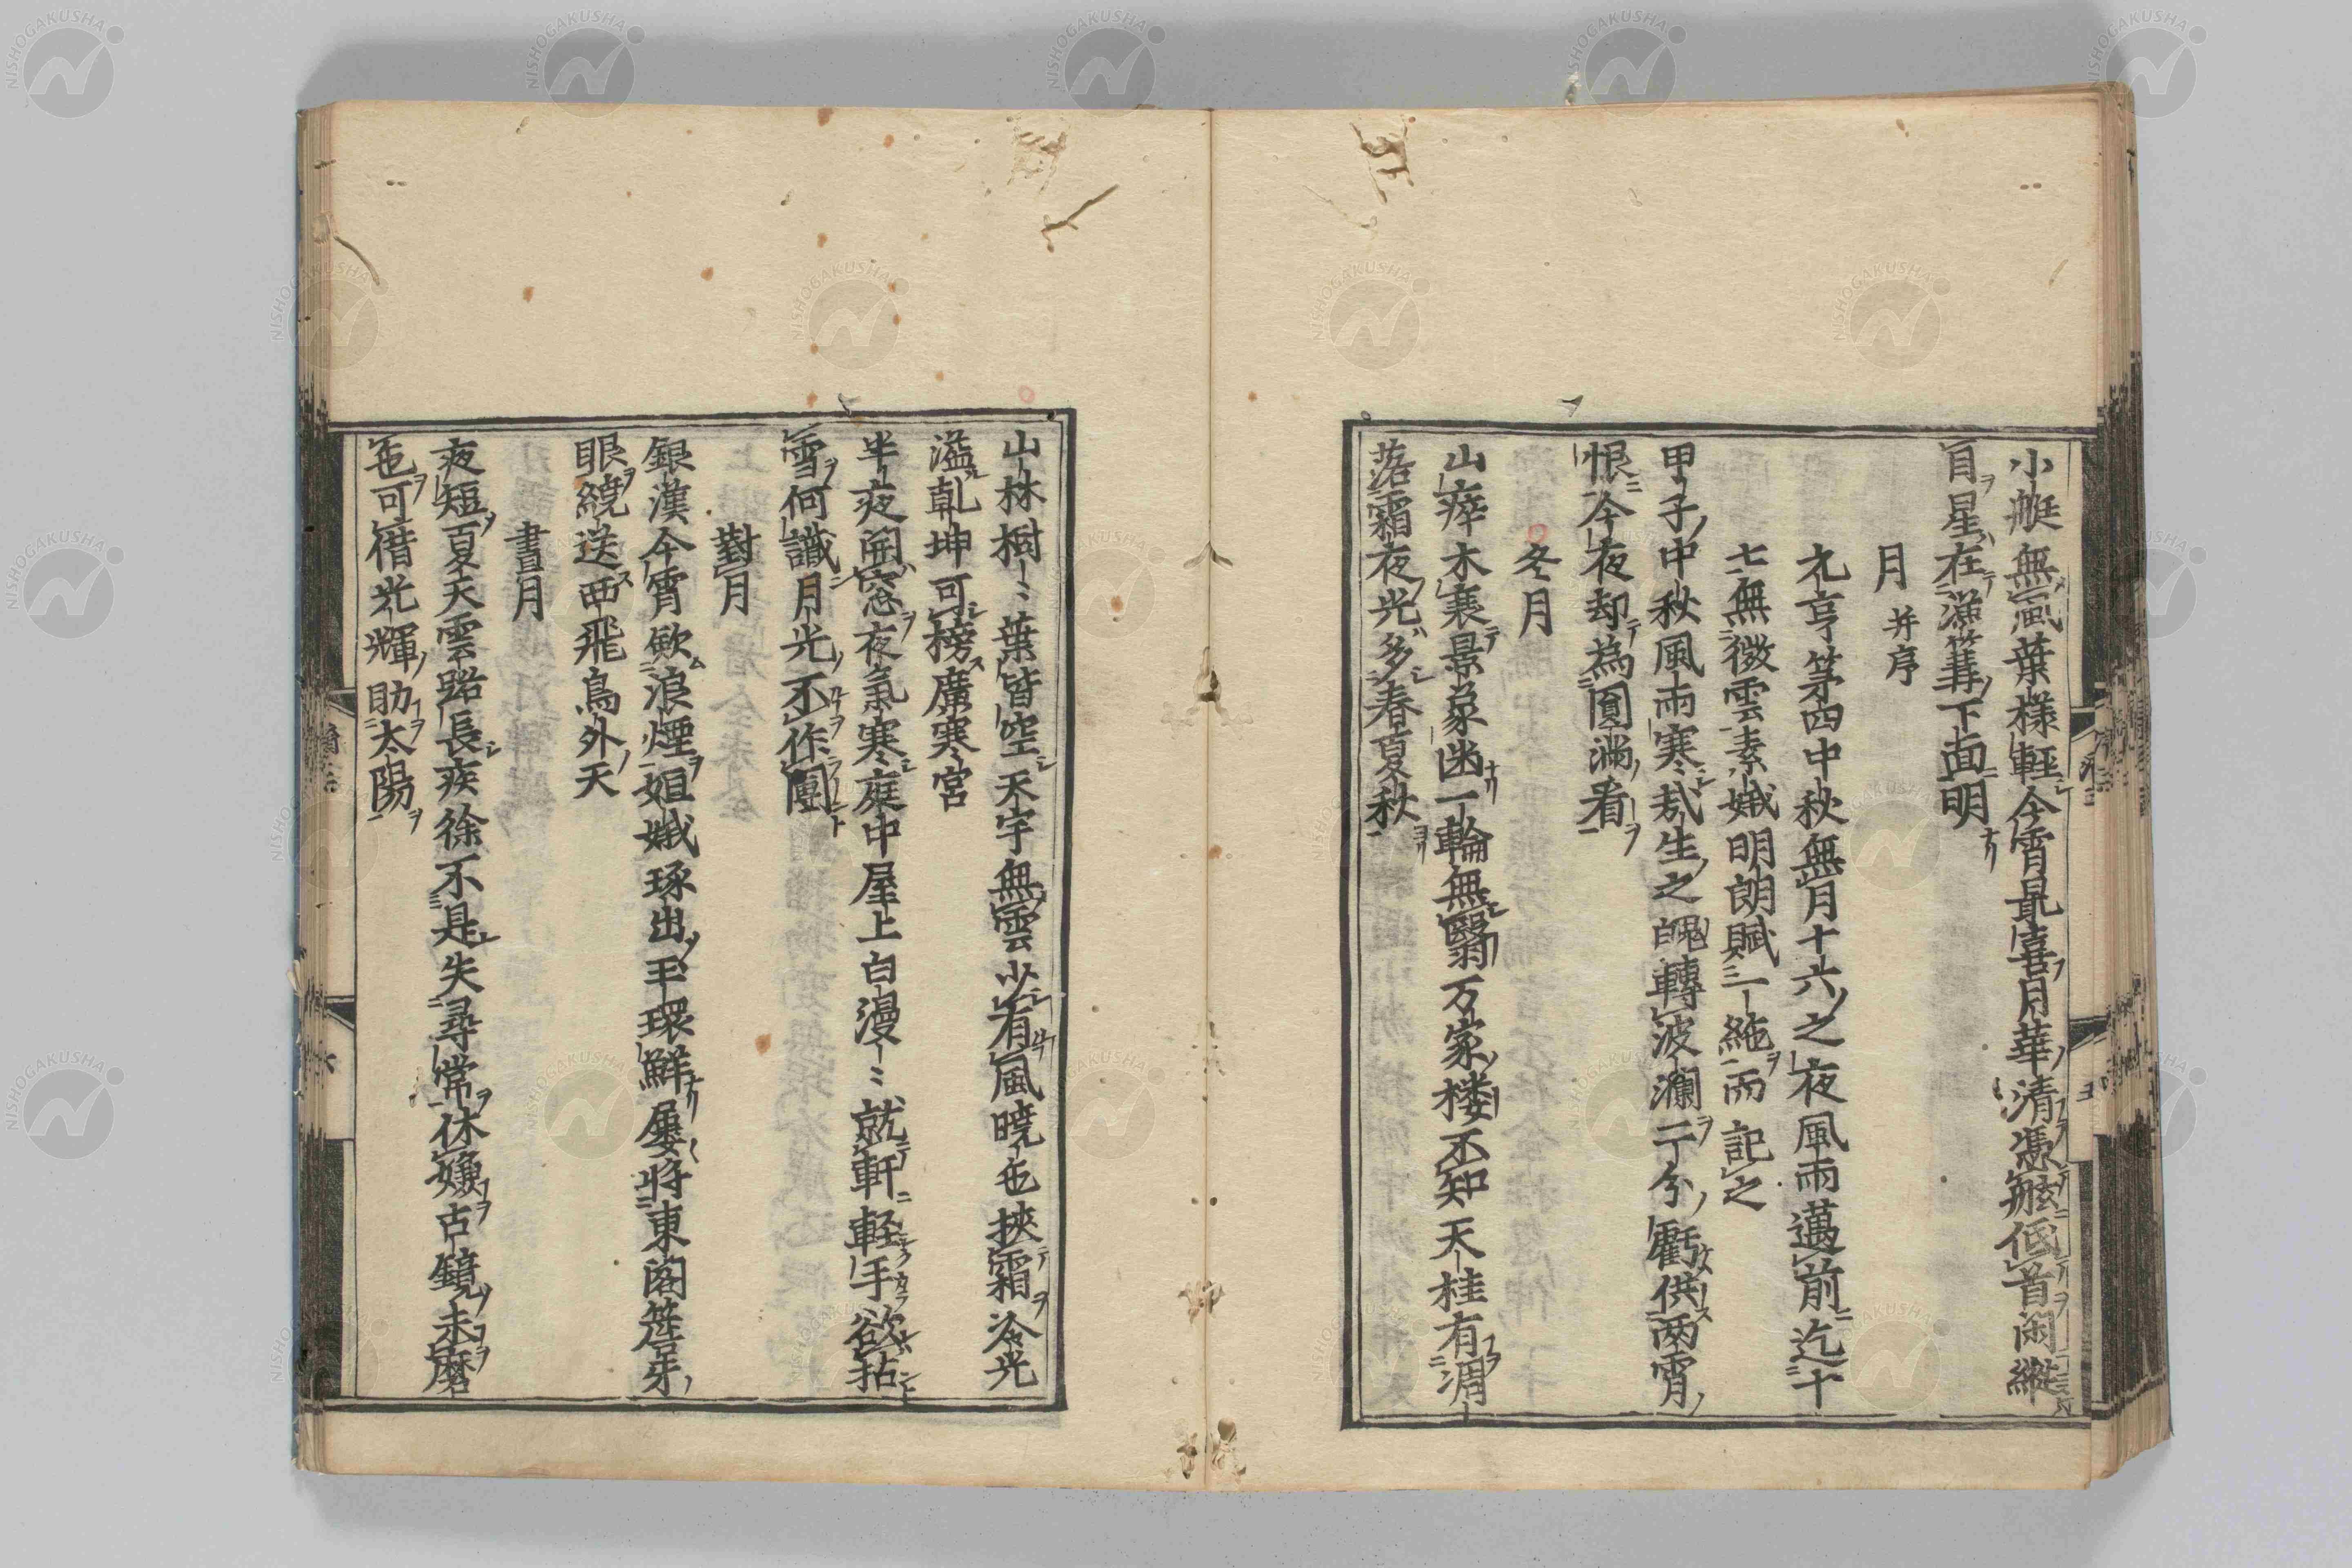 小艇無風葉様軽今宵最喜月華清憑舷低首閑縦
目星在漁篝下面明
月 并序
元亨第四中秋無月十六之夜風雨邁前迄十
七無微雲素娥明朗賦一絶而記之
甲子中秋風雨寒哉生之魄轉波瀾一分虧供両宵
恨今夜却為圓満看
冬月
山瘁木衰景象幽一輪無翳万家楼不知天桂有凋
落霜夜光多春夏秋
山林樹〻葉皆空天宇無雲少有風暁色挾霜冷光
溢乹坤可榜廣寒宮
半夜開窓夜氣寒庭中屋上白漫〻就軒軽手欲拈
雪何識月光丕作團
對月
銀漢今宵歛浪煙姮娥琢出玉環鮮屢将東閣簷牙
眼繞送西飛鳥外天
晝月
夜短夏天雲路長疾徐不是失尋常休嫌古鏡未磨
色可借光輝助太陽